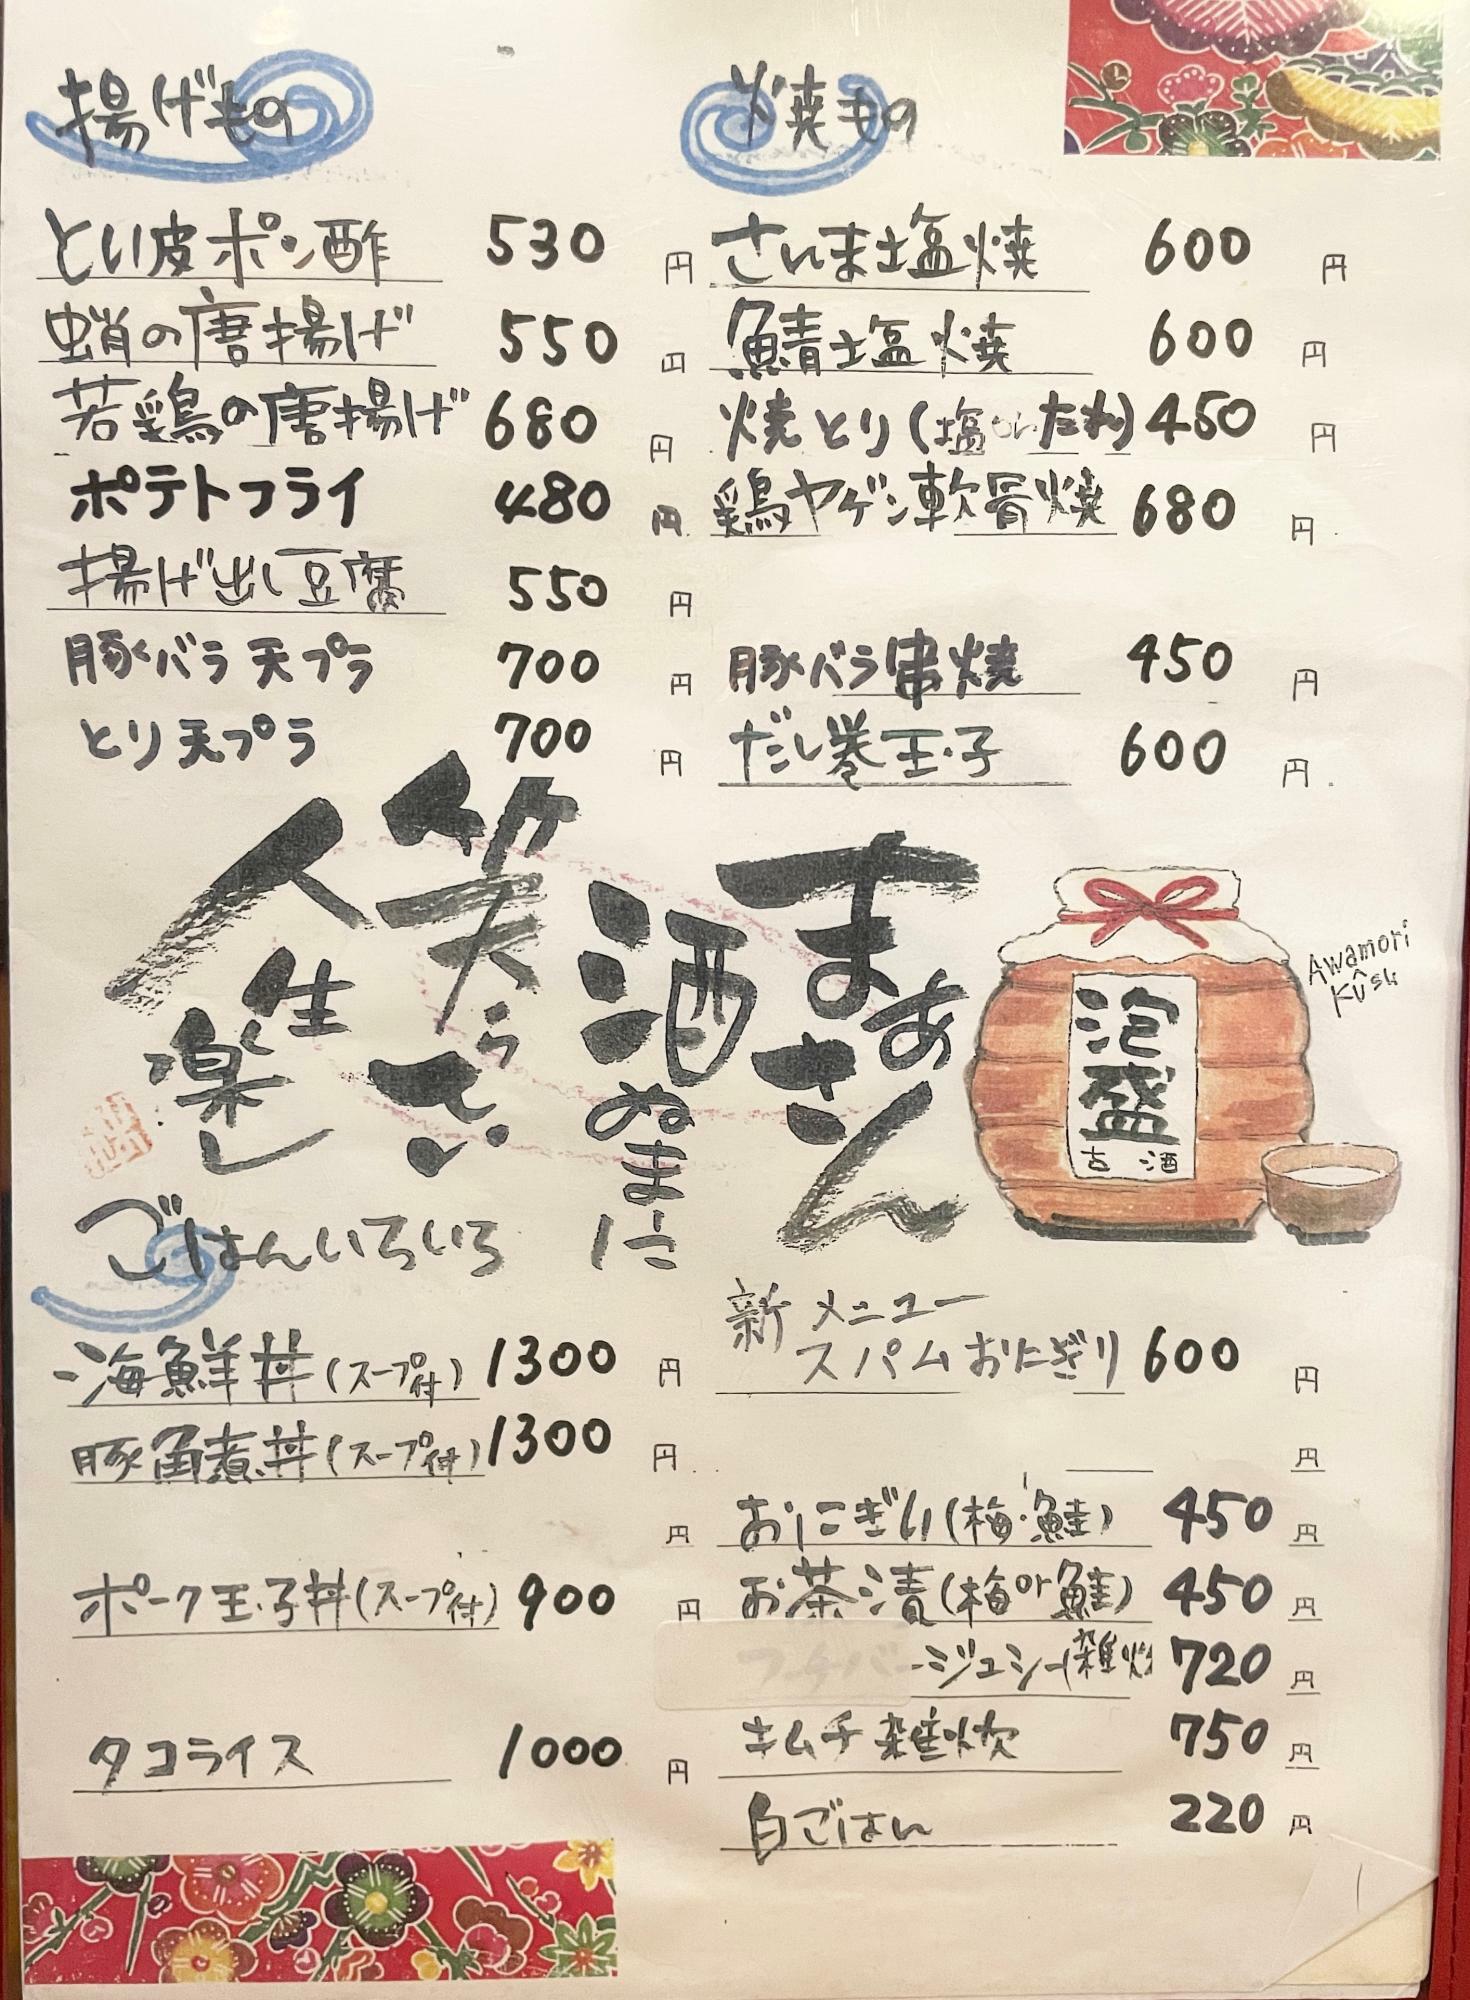 揚げもの
とり皮ポン酢 530 円
蛸の唐揚げ 550 円
若鶏の唐揚げ 680 円
ポテトフライ 480 円
揚げ出し豆腐 550 円
豚バラ天プラ 700 円
とり天プラ 700 円
焼もの
さんま塩焼 600 円
鯖塩焼 600 円
焼とり(塩orたれ) 450 円
鶏ヤゲン軟骨焼 680 円
豚バラ串焼 450 円
だし巻玉子 600 円
まあ
さん
酒
ぬま
笑ら
人生
楽し
泡盛
古酒
Awamori
Kûsu
ごはんいろいろ
海鮮丼(スープ付) 1300 円
豚角煮丼(スープ付) 1300 円
円
ポーク玉子丼(スープ付) 900 円
タコライス 1000 円
新メニュー
スパムおにぎり 600 円
円
おにぎり(梅・鮭) 450 円
お茶漬(梅or鮭) 450 円
フーチバージュシー(雑炊 720 円
キムチ雑炊 750 円
白ごはん 220 円